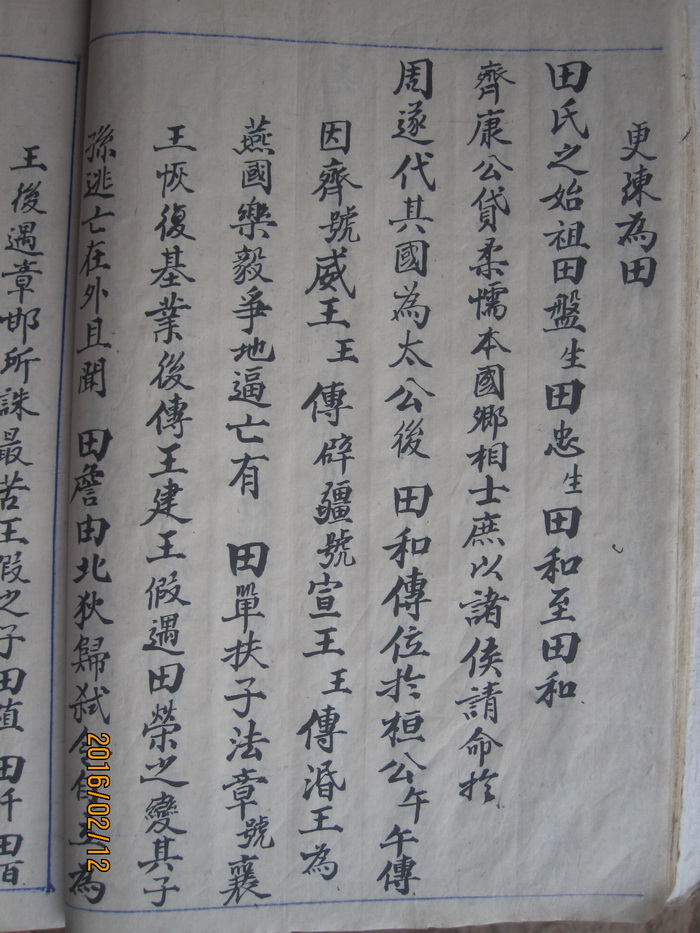 更陳為田
田氏之始祖田盤生田忠生田和至田和
齊康公貸柔懦本國鄉相士庶以諸侯請命扵
周遂代其國為太公後 田和傳位扵桓公午午傳
因齊號威王王傳辟疆號宣王王傳湣王為
燕國樂毅爭地逼亡有 田單扶子法章號襄
王恢復基業後傳王建王假遇田榮之變其子
孫逃亡在外且聞 田詹由北狄歸弒 為
王後遇章邯所誅最苦王假之子田 田仟田百
2016/02/12